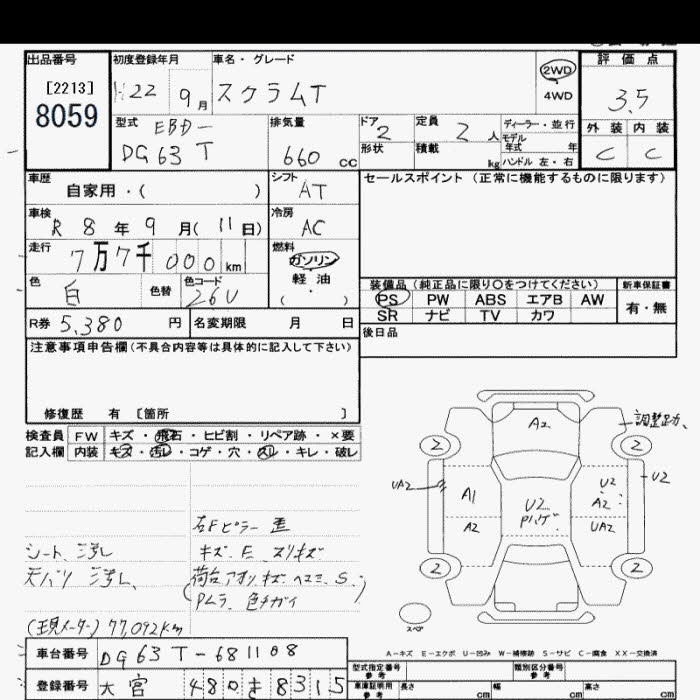 出品番号 初度登録年月 車名・グレード 2WD 評価点
[2213] H22 9月 スクラムT 4WD 3.5
8059 型式 EBD- 排気量 ドア 2 定員 2人 ディーラー・並行 外装 内装
DG63T 660cc 形状 積載 kg モデル年式 年 C C
ハンドル 左・右
車歴 自家用・( ) シフト AT セールスポイント(正常に機能するものに限ります)
車検 R8年9月(11日) 冷房 AC
走行 7万7千000km 燃料 ガソリン
軽油
( ・ )
色 白 色替 色コード 26U 装備品(純正品に限り○をつけてください) 新車保証書
PS PW ABS エアB AW 有・無
SR ナビ TV カワ
R券 5,380円 名変期限 月 日 後日品
注意事項申告欄(不具合内容等は具体的に記入して下さい)
修復歴 有 [箇所 ]
検査員 FW キズ・飛石・ヒビ割・リペア跡・×要
記入欄 内装 キズ・汚レ・コゲ・穴・スレ・キレ・破レ
A2
2 2
UA2 A1 U2 U2 U2
A2 Pハゲ A2
UA2
2 2
スペア
右Fピラー 歪
シート汚レ キズ.E.スリキズ
天バリ汚レ (荷台アオリキズ.ヘコミ.S.)
Pムラ 色チガイ
(現メーター) 77,092km
A-キズ E-エクボ U-凹み W-補修跡 S-サビ C-腐食 XX-交換済
車台番号 DG63T-681108
登録番号 大宮 480き8315
型式指定番号 参考 類別区分番号 参考
車庫証明用 参考 長さ cm 幅 cm 高さ cm